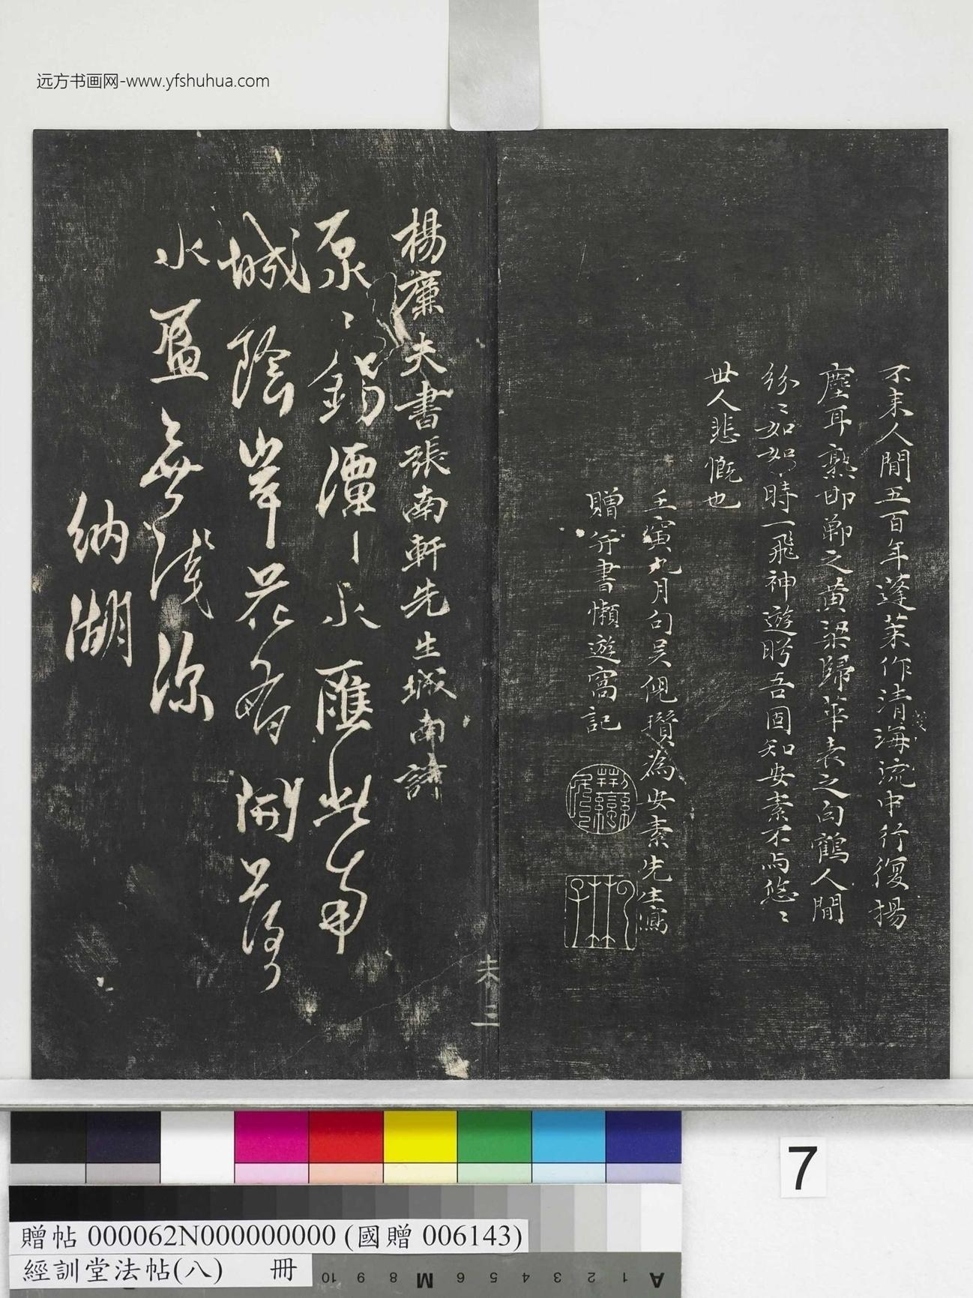 远方书画网-www.yfshuhua.com
不来人間五百年蓬莱作清海流中行復揚
塵耳熟邯鄲之黄梁歸華表之白鶴人間
紛〻如如時一飛神遊眄吾固知安素不與悠〻
世人悲慨也
壬寅九月句吴倪瓚為安素先生寫
贈并書懶遊窩記
未三
楊廉夫書張南軒先生城南詩
原〻錫潭水匯此南
城陰岸花有開落
水盈無淺深
納湖
7
贈帖 000062N000000000 (國贈 006143)
經訓堂法帖(八) 冊
10 9 8 M 6 5 4 3 2 1 A